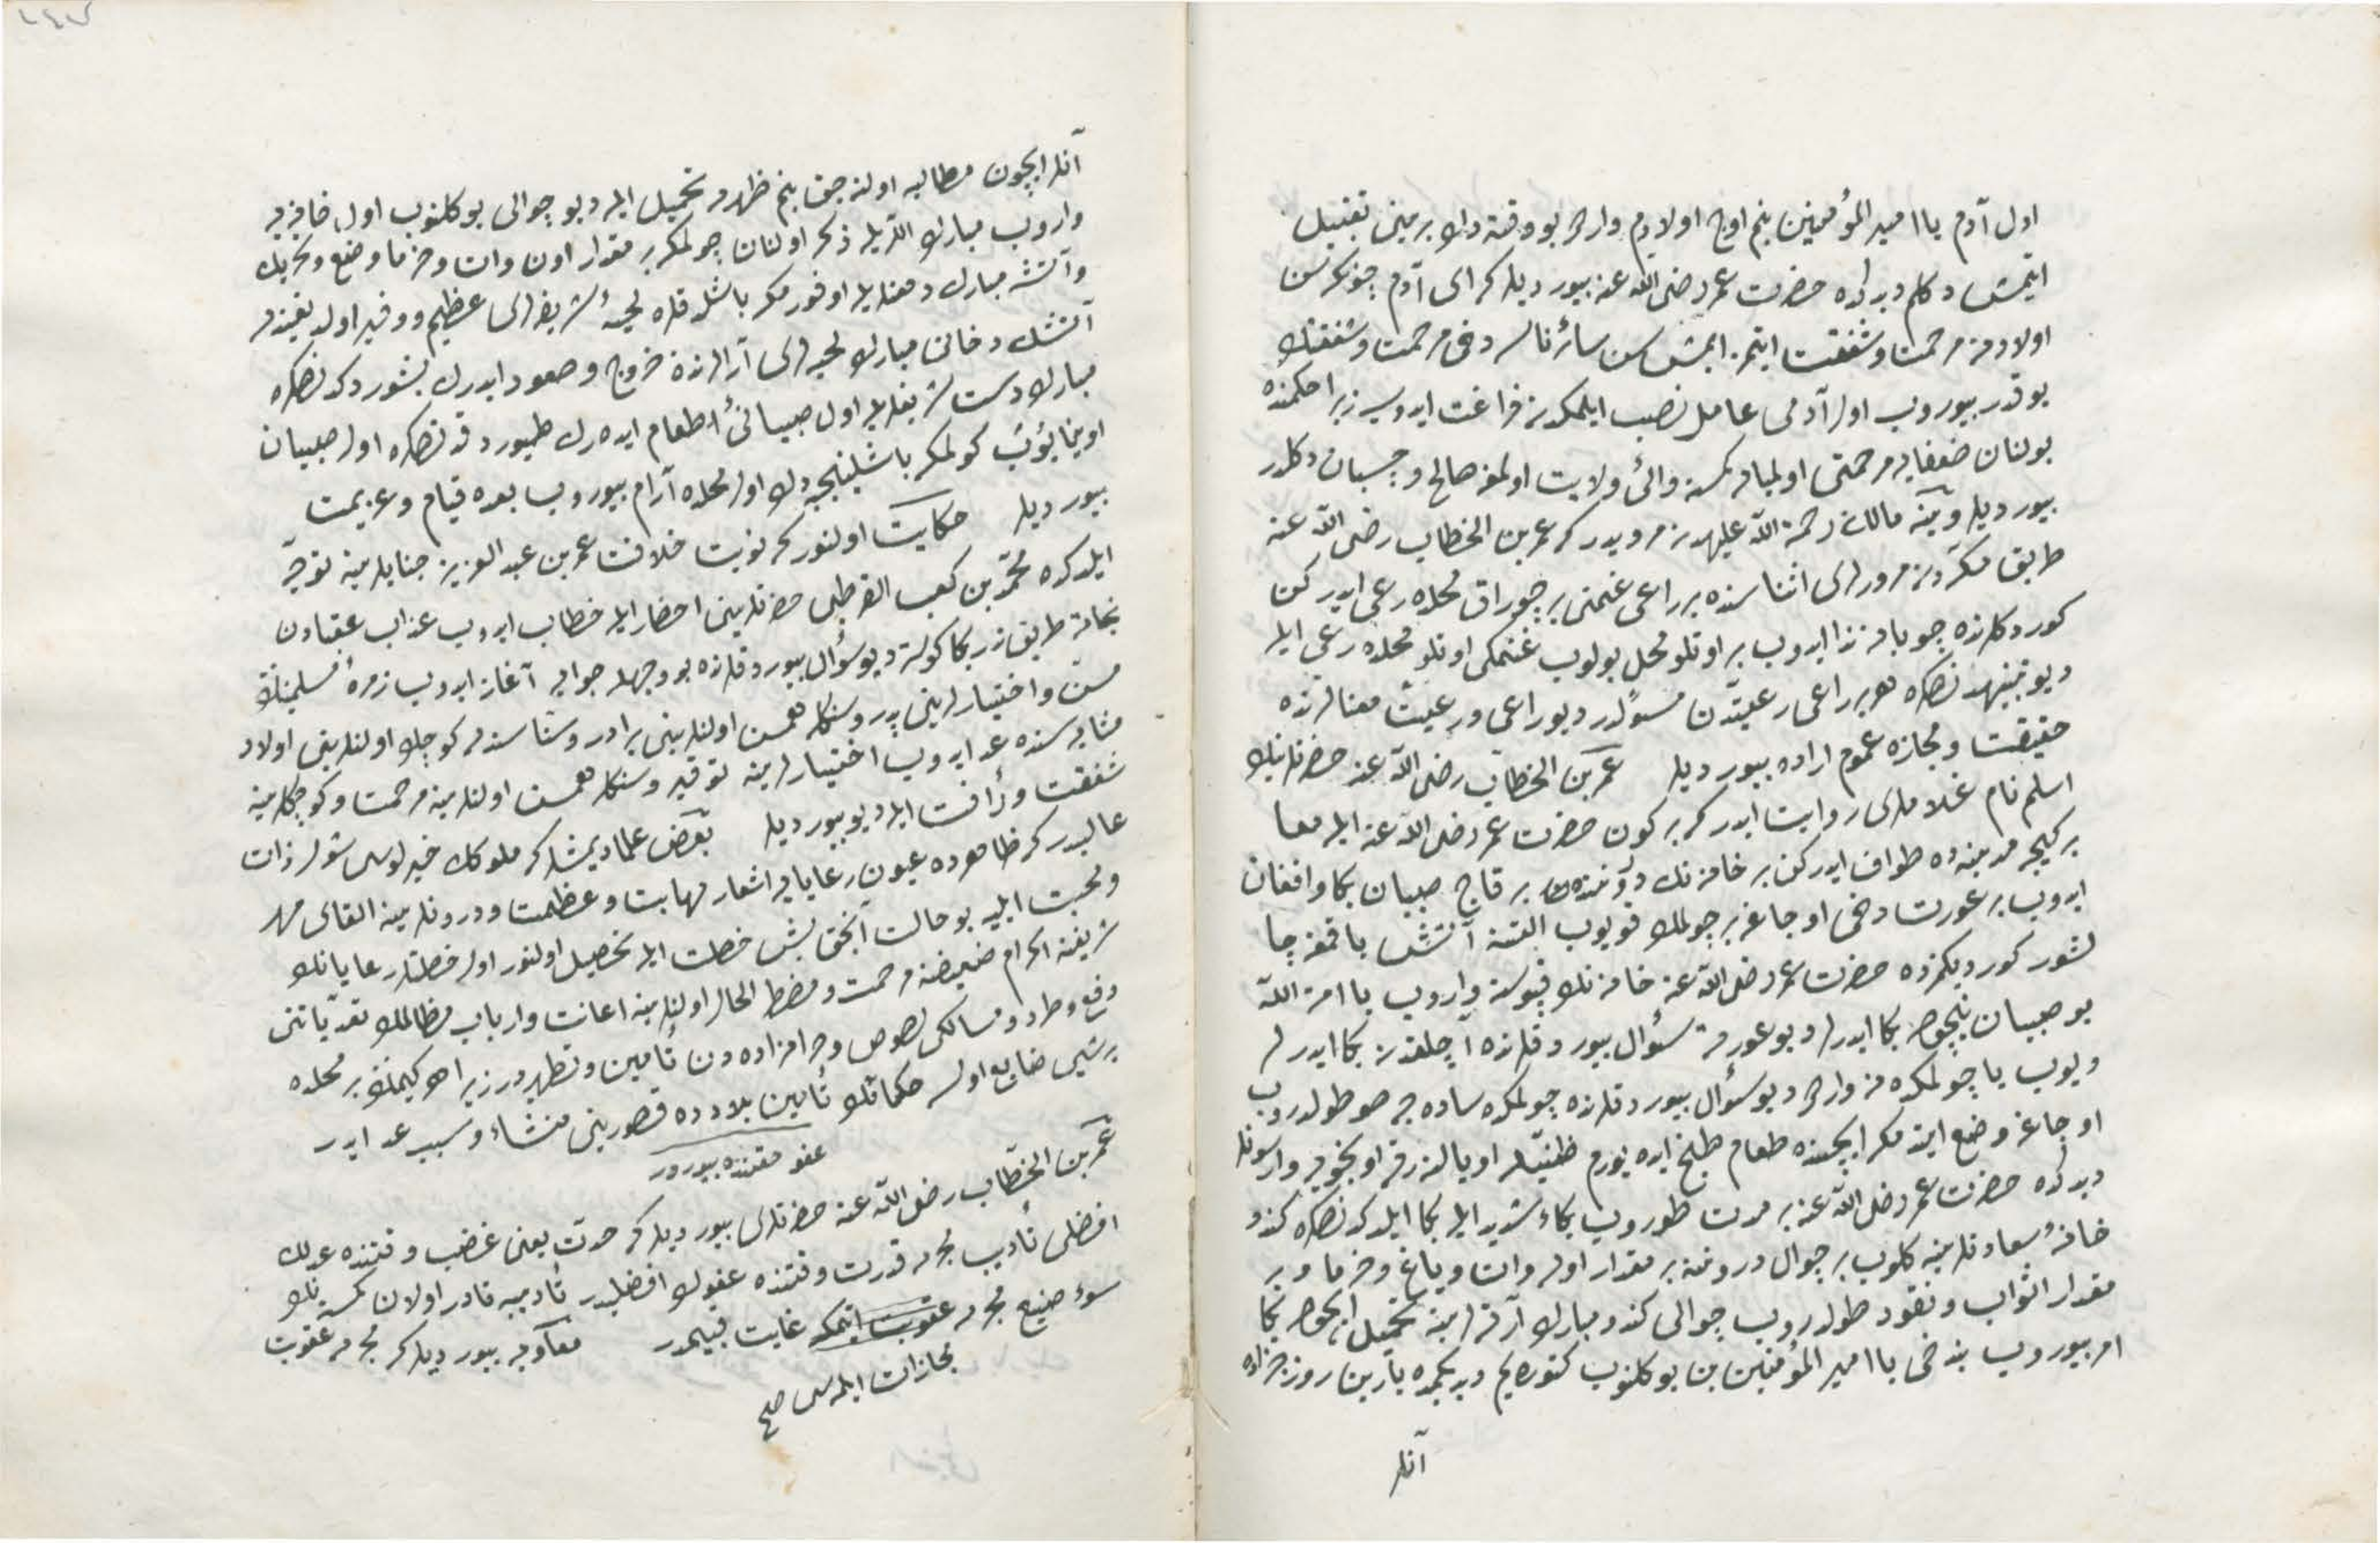 اول آدم یا امیر المؤمنین بنم اوچ اولادم واردر بو وقته دك برینی تقبیل
ایتمش دكلم دیدكده حضرت عمر رضی الله عنه بیوردیلر كه ای آدم چونكه سن
اولادكه مرحمت وشفقت ایتمز ایمش سن سائر ناسه دخی مرحمت وشفقتك
یوقدر بیوروب اول آدمی عامل نصب ایلمكدن فراغت ایدوب زیرا حكمنده
بولنان ضعفایه مرحمتی اولمیان كمسه والئ ولایت اولمغه صالح وچسبان دكلدر
بیوردیلر وینه مالك رحمة الله علیهدن مرویدر كه عمر بن الخطاب رضی الله عنه
طریق مكه دن مرورلری اثناسنده بر راعی غنمنی بر چوراق محلده رعی ایدركن
كوردكلرنده چوبانه ندا ایدوب بر اوتلو محل بولوب غنمكی اوتلو محلده رعی ایله
دیو تنبیهدنصكره هر بر راعی رعیتدن مسؤلدر دیو راعی ورعیت معنالرنده
حقیقت ومجازه عموم اراده بیوردیلر عمر بن الخطاب رضی الله عنه حضرتلرینك
اسلم نام غلاملری روایت ایدر كه بر كون حضرت عمر رضی الله عنه ایله معا
بر كیجه مدینه ده طواف ایدركن بر خانه نك درونندن بر قاچ صبیان بكا وافغان
ایدوب بر عورت دخی اوجاغه بر چولمك قویوب التنه آتش یاقمغه چا
لشور كوردیكمزده حضرت عمر رضی الله عنه خانه نك قپوسنه واروب یا امة الله
بو صبیان نیچون بكا ایدرلر دیو عورته سؤال بیوردقلرنده آچلقدن بكا ایدرلر
دیوب یا چولمكده نه واردر دیو سؤال بیوردقلرنده چولمكده ساده جه صو طولدروب
اوجاغه وضع ایتدمكه ایچنده طعام طبخ ایده یورم ظنیله اویالنرق اویخویه وارسونلر
دیدكده حضرت عمر رضی الله عنه بر مدت طوروب بكاء شدید ایله بكا ایلدكدنصكره كندو
خانۀ سعادتلرینه كلوب بر جوال دروننه بر مقدار اون وات ویاغ وخرما وبر
مقدار اثواب ونقود طولدروب جوالی كندو مبارك آرقه لرینه تحمیل ایچون بكا
امر بیوروب بندخی یا امیر المؤمنین بن یوكلنوب كتوره یم دیدیكمده یارین روز جزاده
آنلر
آنلر ایچون مطالبه اولنه جق بنم ظهرمه تحمیل ایله دیو جوالی یوكلنوب اول خانه یه
واروب مبارك اللریله ذكر اولنان چولمكه بر مقدار اون وات وخرما وضع وتحریك
وآتشه مبارك دمعلریله اوفورمكه باشلدقده لحیۀ شریفلری عظیم ووفیر اولدیغندن
آتشك دخانی مبارك لحیه لری آرالرندن خروج وصعود ایدرك پشوردكدنصكره
مبارك دست شریفلریله اول صبیانی اطعام ایده رك طیوردقدنصكره اول صبیان
اوینایوب كولمكه باشلینجیه دك اول محلده آرام بیوروب بعده قیام وعزیمت
بیوردیلر حكایت اولنور كه نوبت خلافت عمر بن عبد العزیز جنابلرینه توجه
ایلدكده محمد بن كعب القرظی حضرتلرینی احضار ایله خطاب ایدوب عذاب عقبادن
نجاته طریق ندر بكا كوستر دیو سؤال بیوردقلرنده بو وجهله جوابه آغاز ایدوب زمرۀ مسلمینك
مسن واختیارلرینی پدر وسنكله همسن اولنلرینی برادر وسنا سندن كوچك اولنلرینی اولاد
مثابه سنده عد ایدوب اختیارلرینه توقیر وسنكله همسن اولنلرینه مرحمت وكوچكلرینه
شفقت ورأفت ایله دیو بیوردیلر بعض علما دیمشلر كه ملوكك خیرلوسی شول ذات
عالیدر كه ظاهرده عیون رعایایه اشعار مهابت وعظمت ودرونلرینه القای مهر
ومحبت ایلیه بو حالت آنجق بش خصلت ایله تحصیل اولنور اول خصلتلر رعایانك
شریفنه اكرام ضعیفنه مرحمت ومضطر الحال اولنلرینه اعانت وارباب مظالمك تعدیاتنی
دفع وطرد ومسالكی لصوص وحرامزاده دن تأمین وتطهیردر زیرا هر كیمك بر محلده
بر شیی ضایع اولسه حكمانك تأمین بلادده قصورینی منشاء وسبب عد ایدر
عفو مقتنده بیورر
عمر بن الخطاب رضی الله عنه حضرتلری بیوردیلر كه حدت یعنی غضب وقتنده عدلك
افضلی تأدیب مجرمه قدرت وقتنده عفوك افضلیدر تأدیبه قادر اولان كمسه نك
سوء صنیع مجرمه عقوبت ایتمك غایت قبیحدر معاویه بیوردیلر كه مجرمه عقوبت
مجازات ایلمسی صح